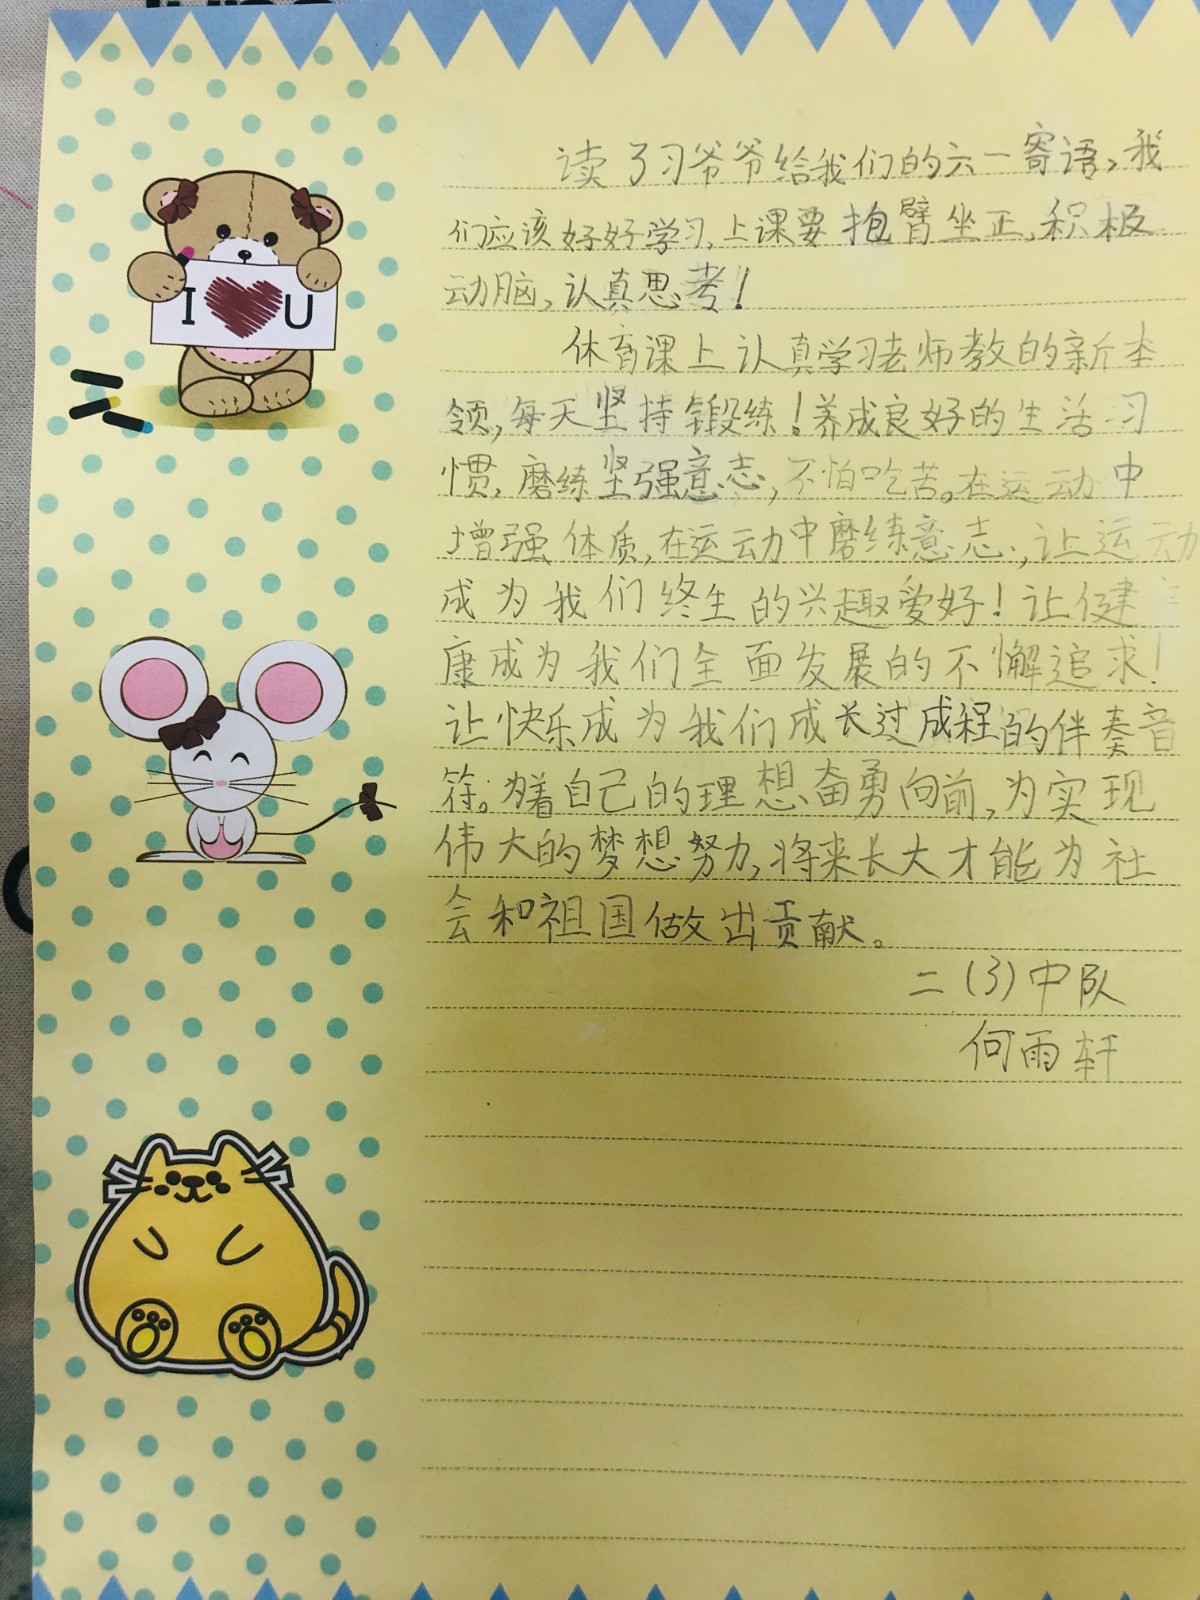 I U
读了习爷爷给我们的六一寄语,我
们应该好好学习,上课要抱臂坐正,积极
动脑,认真思考!
体育课上认真学习老师教的新本
领,每天坚持锻练!养成良好的生活习
惯,磨练坚强意志,不怕吃苦。在运动中
增强体质,在运动中磨练意志,让运动
成为我们终生的兴趣爱好!让健
康成为我们全面发展的不懈追求!
让快乐成为我们成长过成程的伴奏音
符。为着自己的理想奋勇向前,为实现
伟大的梦想努力,将来长大才能为社
会和祖国做出贡献。
二(3)中队
何雨轩